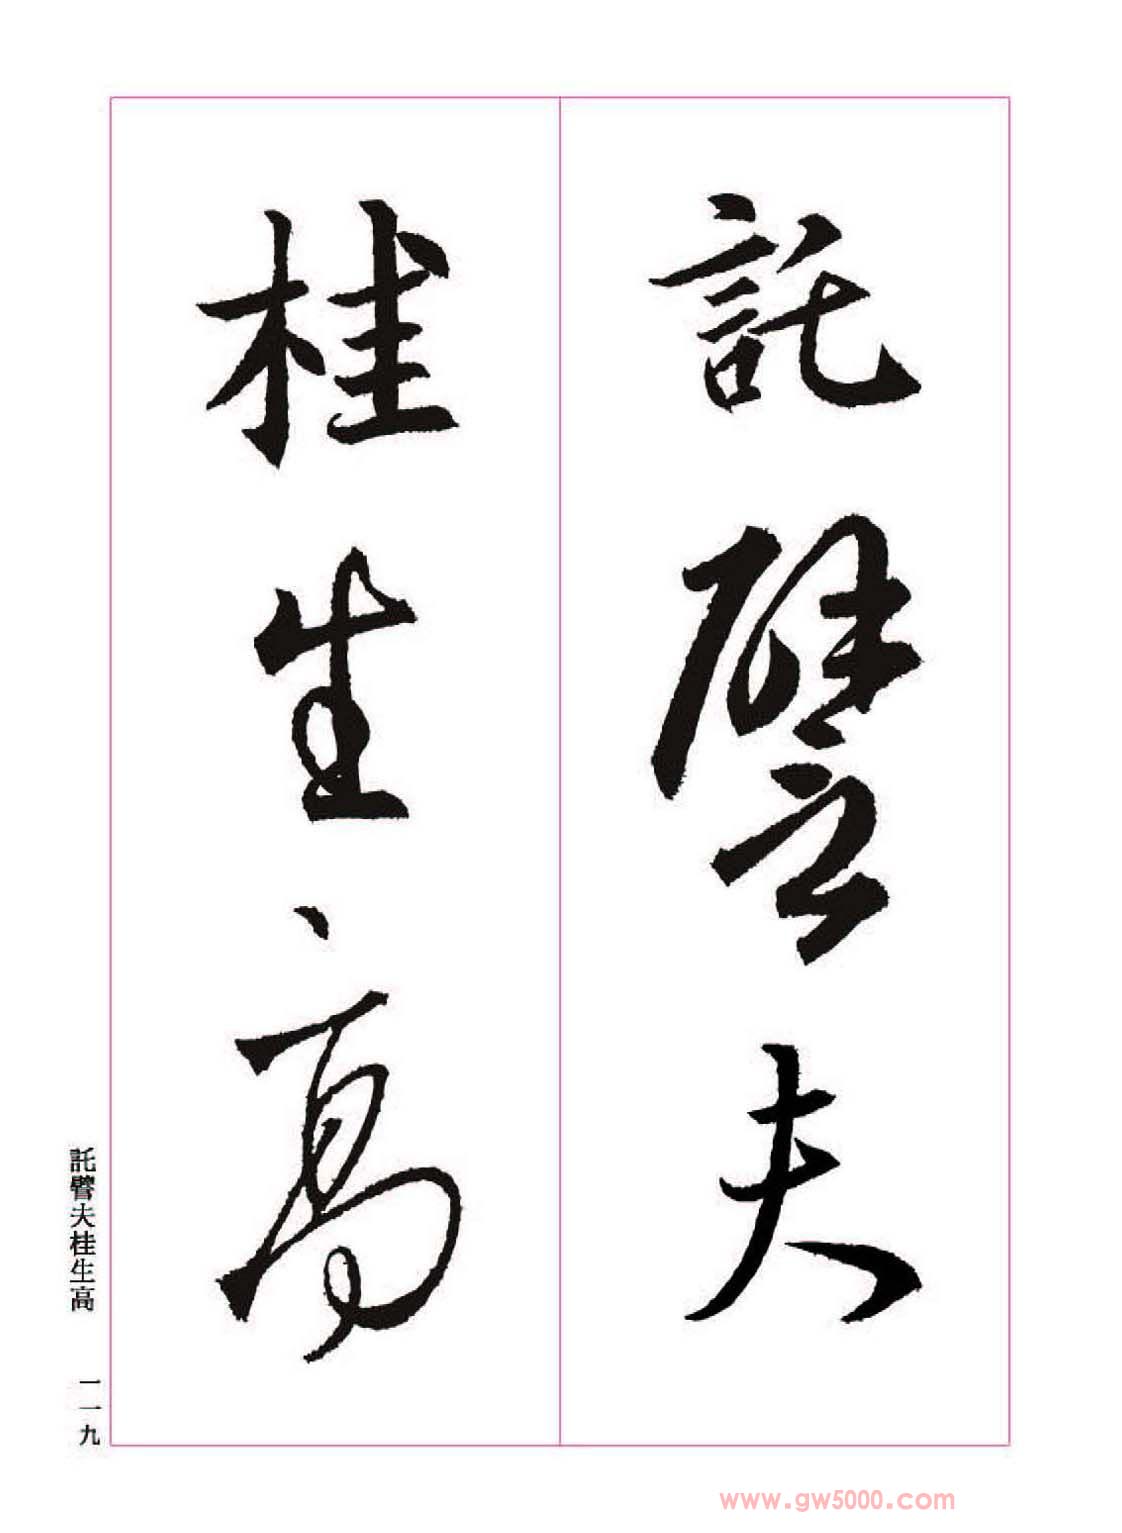 託譬夫
桂生高
託譬夫桂生高
一一九
www.gw5000.com